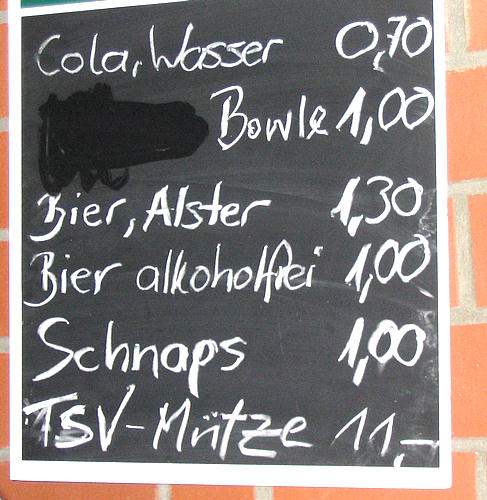 Cola, Wasser 0,70
Bowle 1,00
Bier, Alster 1,30
Bier alkoholfrei 1,00
Schnaps 1,00
TSV-Mütze 11,-